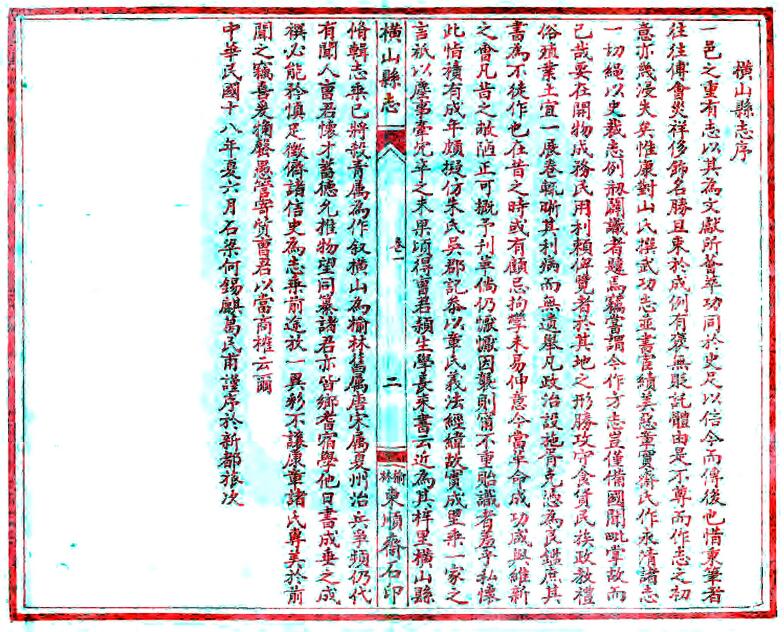 橫山縣志序
一邑之重有志以其為文獻所薈萃功同於史足以信今而傳後也惜秉筆者
往往傅會災祥侈飾名勝且束於成例有褒無貶託體由是不尊而作志之初
意亦幾浸失矣惟康對山氏撰武功志並書官績美惡章實齋氏作永清諸志
一切繩以史裁志例剏闢識者韙焉竊嘗謂今作方志豈僅備國聞毗掌故而
已哉要在開物成務民用利賴俾覽者於其地之形勝攻守食貨民族政教禮
俗殖業土宜一展卷輒晰其利病而無遺舉凡政治設施胥克憑為民鑑庶其
書為不徒作也在昔之時或有顧忌拘攣未易伸意今當革命成功咸與維新
之會凡昔之敝陋正可摡予刓革倘仍慽慽因襲則甯不重貽識者羞乎私懷
此恉積有成年頗擬仿朱氏吳郡記叅以章氏義法經緯故實成里乘一家之
言祇以塵事牽宂卒之未果頃得曹君穎生學長來書云近為其梓里橫山縣
橫山縣志
卷一
二
榆林東順齋石印
脩輯志乘已將殺青屬為作叙橫山為榆林舊屬唐宋屬夏州治兵爭頻仍代
有聞人曹君懷才蓄德允推物望同纂諸君亦皆鄉耆宿學他日書成垂之成
禩必能矜慎足徵儕諸信史為志乘前途放一異彩不讓康章諸氏專美於前
聞之竊喜爰摘罄愚嘗寄質曹君以當商榷云爾
中華民國十八年夏六月石梁何錫麒萬民甫謹序於新都旅次